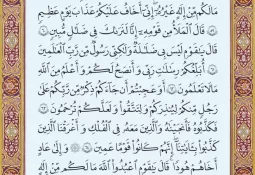 مَالَكُم مِّنْ إِلَٰهٍ غَيْرُهُۥٓ إِنِّىٓ أَخَافُ عَلَيْكُمْ عَذَابَ يَوْمٍ عَظِيمٍ
۝ قَالَ ٱلْمَلَأُ مِن قَوْمِهِۦٓ إِنَّا لَنَرَىٰكَ فِى ضَلَٰلٍ مُّبِينٍ ۝
قَالَ يَٰقَوْمِ لَيْسَ بِى ضَلَٰلَةٌ وَلَٰكِنِّى رَسُولٌ مِّن رَّبِّ ٱلْعَٰلَمِينَ
۝ أُبَلِّغُكُمْ رِسَٰلَٰتِ رَبِّى وَأَنصَحُ لَكُمْ وَأَعْلَمُ مِنَ ٱللَّهِ
مَا لَا تَعْلَمُونَ ۝ أَوَعَجِبْتُمْ أَن جَآءَكُمْ ذِكْرٌ مِّن رَّبِّكُمْ عَلَىٰ
رَجُلٍ مِّنكُمْ لِيُنذِرَكُمْ وَلِتَتَّقُوا۟ وَلَعَلَّكُمْ تُرْحَمُونَ ۝
فَكَذَّبُوهُ فَأَنجَيْنَٰهُ وَٱلَّذِينَ مَعَهُۥ فِى ٱلْفُلْكِ وَأَغْرَقْنَا ٱلَّذِينَ
كَذَّبُوا۟ بِـَٔايَٰتِنَآ إِنَّهُمْ كَانُوا۟ قَوْمًا عَمِينَ ۝ وَإِلَىٰ عَادٍ
أَخَاهُمْ هُودًا قَالَ يَٰقَوْمِ ٱعْبُدُوا۟ ٱللَّهَ مَا لَكُم مِّنْ إِلَٰهٍ